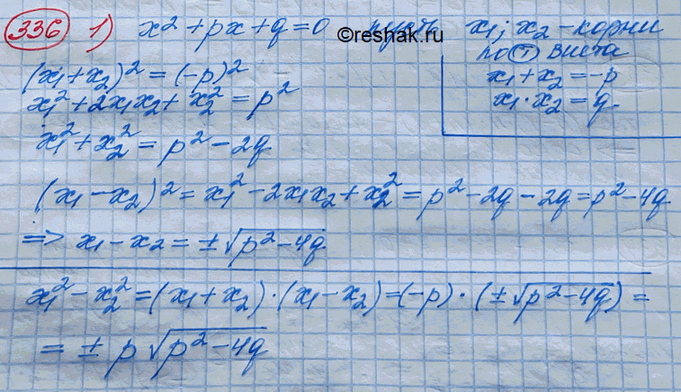 336 1) x² + px + q = 0 пусть x₁; x₂ - корни
©reshak.ru
по т Виета
x₁ + x₂ = -p
x₁ · x₂ = q
(x₁ + x₂)² = (-p)²
x₁² + 2x₁x₂ + x₂² = p²
x₁² + x₂² = p² - 2q
(x₁ - x₂)² = x₁² - 2x₁x₂ + x₂² = p² - 2q - 2q = p² - 4q
=> x₁ - x₂ = ±√(p² - 4q)
x₁² - x₂² = (x₁ + x₂) · (x₁ - x₂) = (-p) · (±√(p² - 4q)) =
= ± p √(p² - 4q)